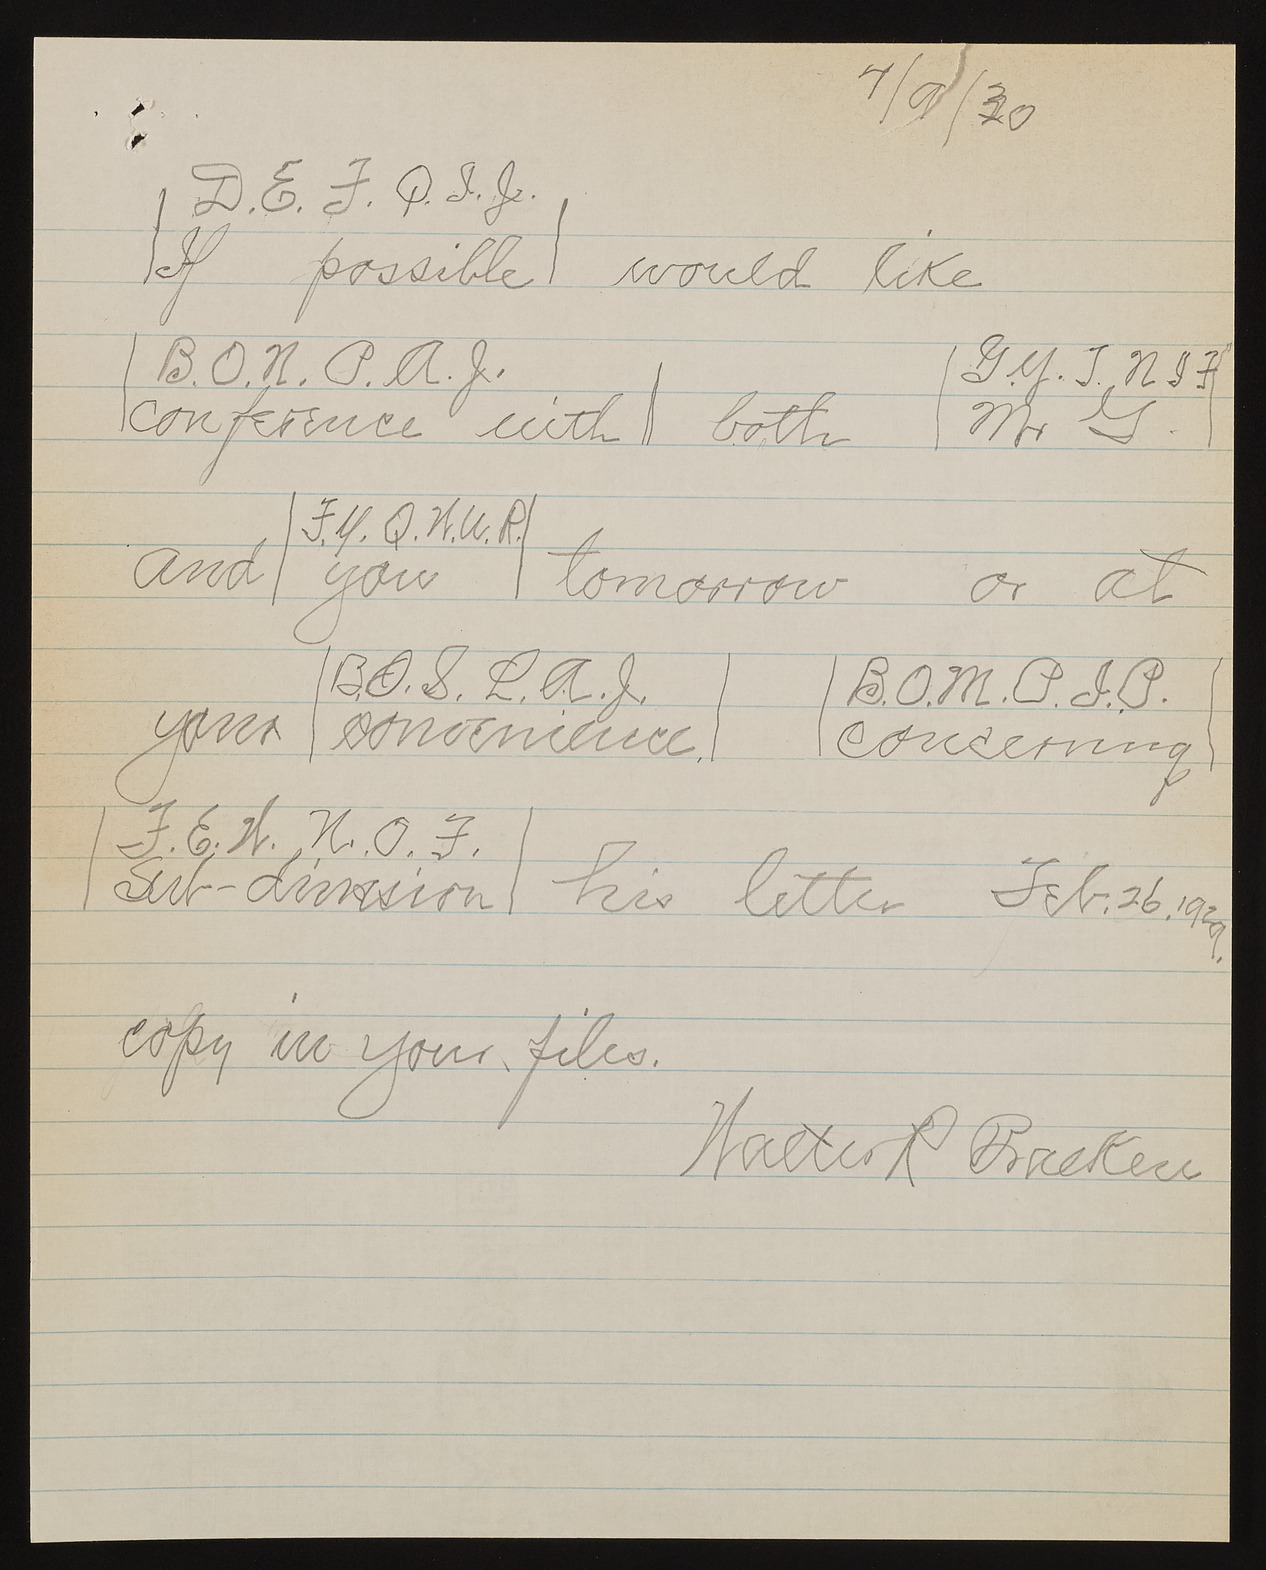 4/9/30
D. E. F. Q. I. J.
If possible would like
B. O. N. P. A. J. G. Y. I. N I F
conference with both Mr G.
F. Y. Q. W. U. R.
and you tomorrow or at
B. O. S. L. A. J. B. O. M. P. I. P.
your convenience. concerning
F. E. W. N. O. F.
Sub-division his letter Feb. 26. 1929.
copy in your files.
Walter R Bracken